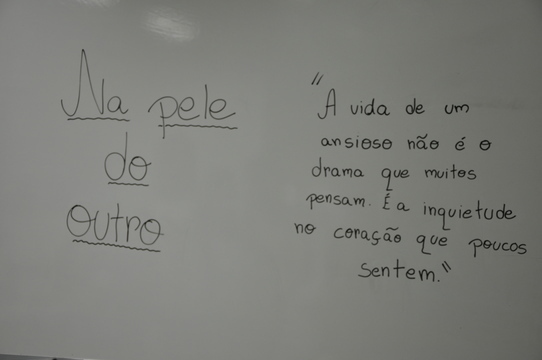 Na pele
do
outro
"A vida de um
ansioso não é o
drama que muitos
pensam. É a inquietude
no coração que poucos
sentem."